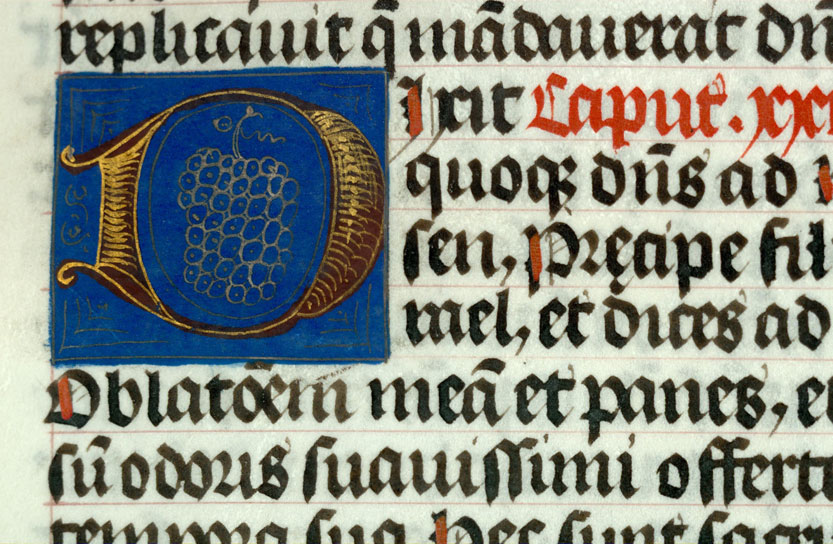 replicauit q̄ mādauerat dn̄
DIxit Caput. xx
quoqꝫ dn̄s ad
sen, Pręcipe fil
mel, et dices ad
Oblatōem meā et panes, e
sū odoris suauissimi offert
tempora sua. Hec sunt sacr